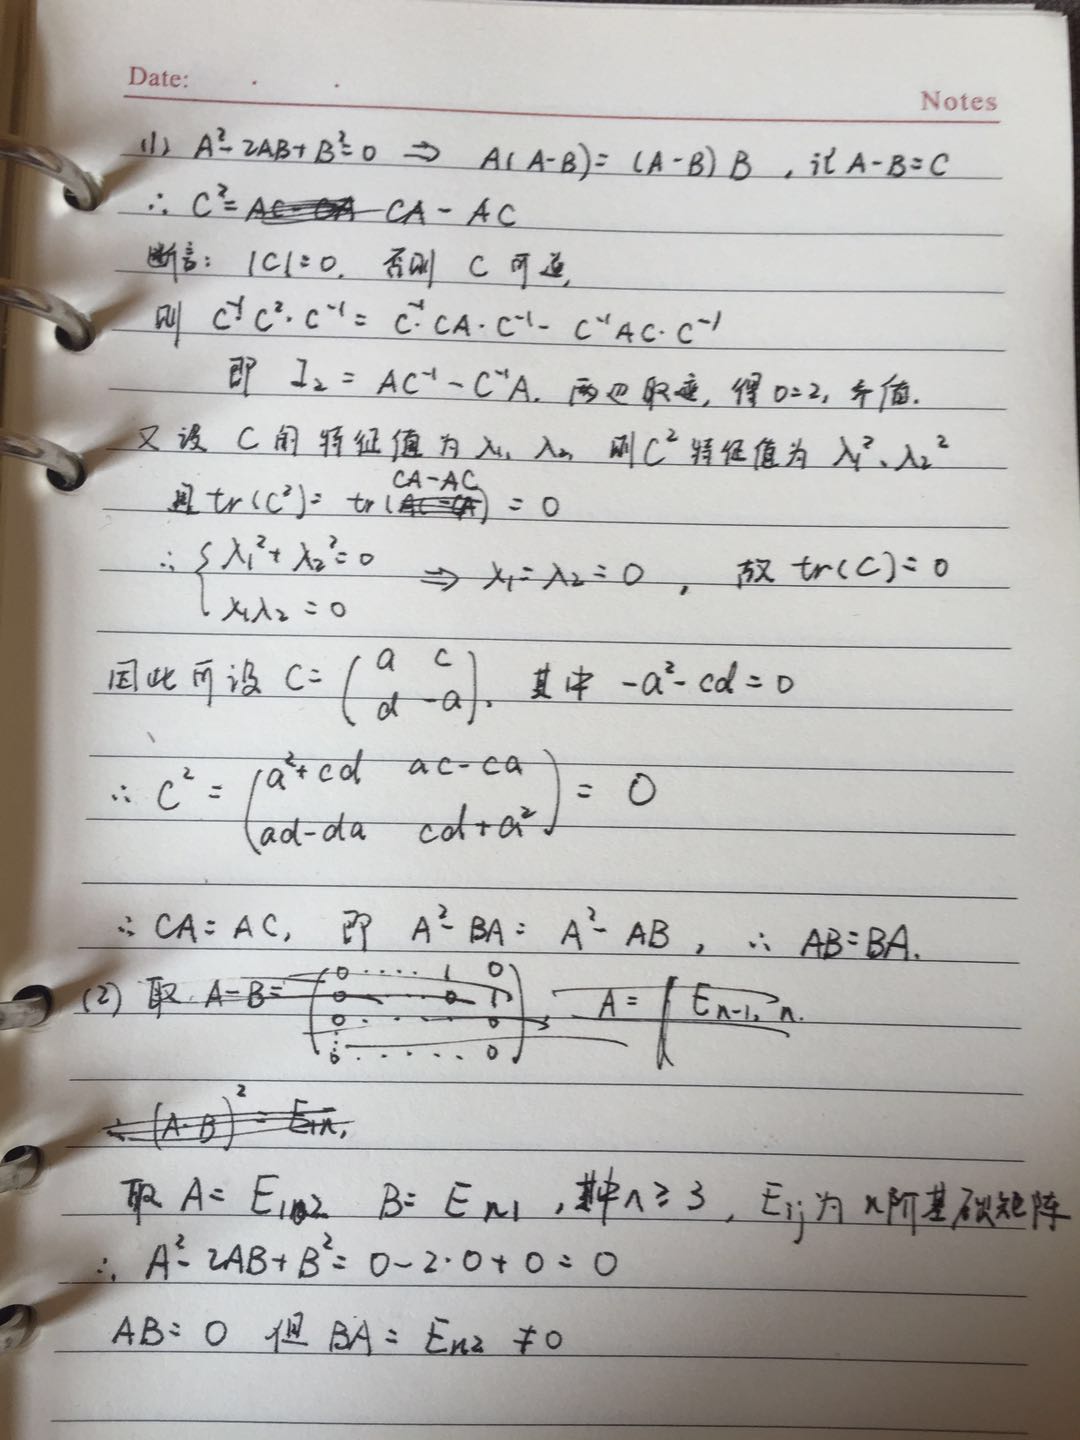 Date: . .
Notes
(1) A²-2AB+B²=0 ⇒ A(A-B)=(A-B)B , 记 A-B=C
∴ C²= CA-AC
断言: |C|=0. 否则 C 可逆,
则 C⁻¹C²·C⁻¹= C⁻¹·CA·C⁻¹- C⁻¹AC·C⁻¹
即 I₂ = AC⁻¹-C⁻¹A. 两边取迹, 得 0=2, 矛盾.
又设 C 的特征值为 λ₁, λ₂, 则C²特征值为 λ₁²、λ₂²
且 tr(C²)= tr(CA-AC) = 0
∴ { λ₁²+λ₂²=0
λ₁λ₂=0 ⇒ λ₁=λ₂=0 , 故 tr(C)=0
因此可设 C= (a c
d -a). 其中 -a²-cd=0
∴ C² = (a²+cd ac-ca
ad-da cd+a²) = 0
∴ CA=AC, 即 A²-BA= A²-AB , ∴ AB=BA.
(2) 取 A-B= (0 ···· 1 0
0 0 1
0 ···· 0
0 ····· 0) A= E n-1, n.
∴ (A-B)² = E₁n,
取 A= E₁₂ B= E n1 , 其中n≥3 , Eij为n阶基础矩阵
∴ A²-2AB+B²= 0-2·0+0=0
AB=0 但 BA= E n2 ≠0